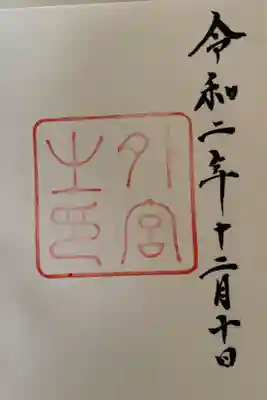 令和二年十二月十日
外宮
之印